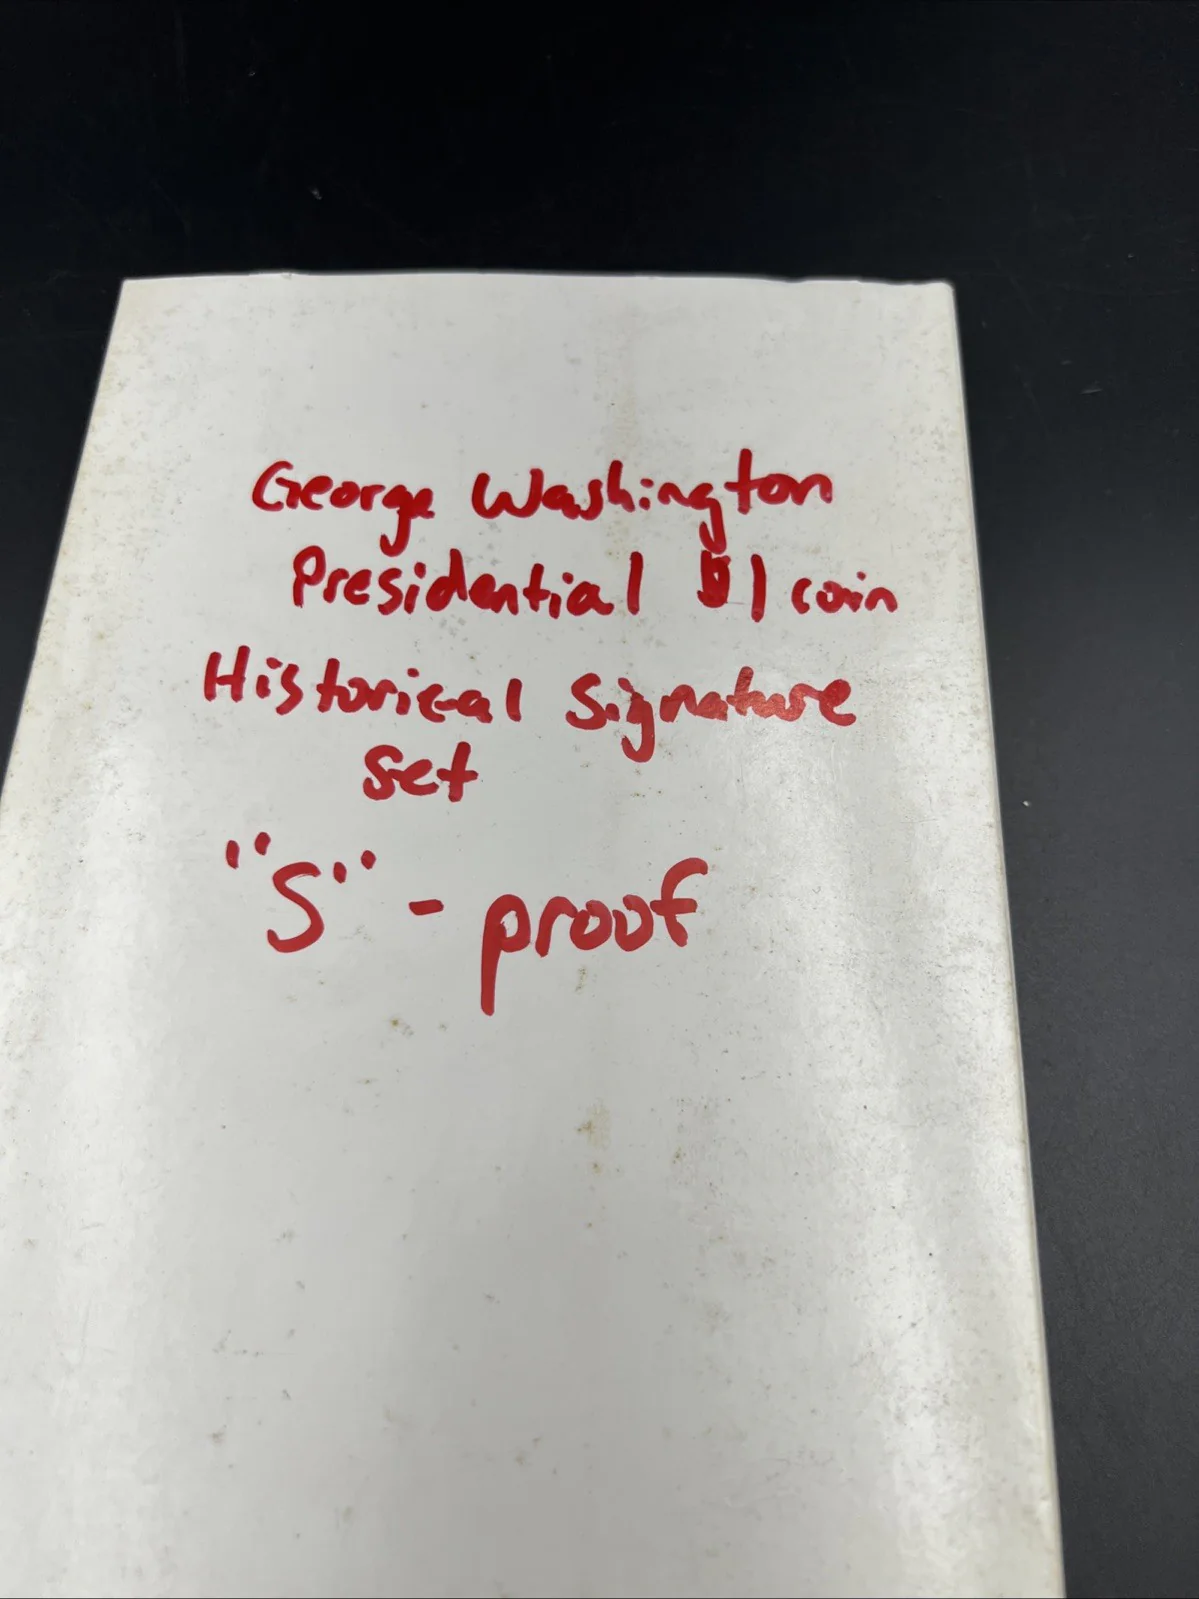 George Washington
Presidential $1 coin
Historical Signature
set
"S" - proof